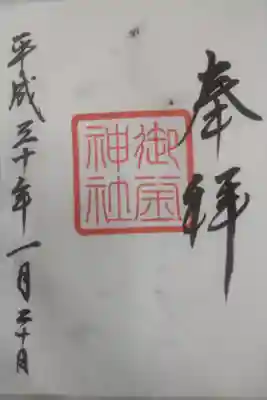 奉拝
神社
平成三十年一月二十日